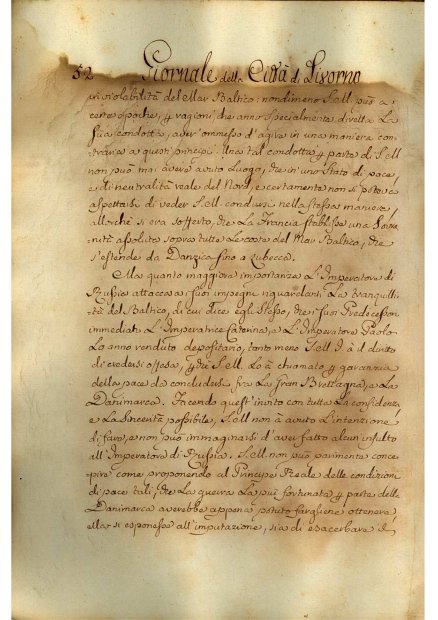 52 Giornale della Città di Livorno
inviolabilità del Mar Baltico: nondimeno S. M. può a
certe epoche, e ragioni, che anno specialmente diretta La
Sua condotta, aver' ommesso d'agire in una maniera con
traria a questi principj. Una tal condotta p parte di S. M
non può mai avere avuto Luogo, che in uno Stato di pace,
e di neutralità reale del Nord, e certamente non si poteva
aspettarsi di veder S. M condursi nella stessa maniera,
allorchè si era sofferto, che La Francia stabilisse una Sovra
nità assoluta sopra tutte Le coste del Mar Baltico, che
s'estende da Danzica fino a Lubecca.
Ma quanto maggiore importanza L'Imperatore di
Russia attacca a' suoi impegni riguardanti La tranquilli
tà del Baltico, di cui dice egli Stesso, che i suoi Predecessori
immediati L'Imperatrice Caterina, e L'Imperatore Paolo
Lo anno renduto depositario, tanto meno S. M I. à il diritto
di credersi offesa, che S. M. Lo à chiamato p garanzia
della pace da concludersi fra La Gran Brettagna, e La
Danimarca. Facendo quest'invito con tutta La confidenza
e La Sincerità possibile, S. M non à avuto L'intenzione
di farò, e non può immaginarsi d'aver fatto alcun insulto
all'Imperatore di Russia. S. M non può parimente conce
pire come proponendo al Principe Reale delle condizioni
di pace tali, che La guerra La più fortunata p parte della
Danimarca averebbe appena potuto fargliene ottenere
ella si esponesse all'imputazione, sia di esacerbare il